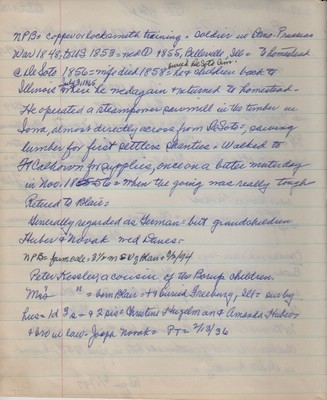 NPB= copper & locksmith training = soldier in Dano-Prussian
War 1848, to US 1853 = wed ① 1855, Belleville, Ill = to homestead
@ DeSoto 1856 = wife died 1858 = buried DeSoto Cem. he & children back to
Illinois where he wed again & returned to homestead =
He operated a steam power sawmill in the timber in
Iowa, almost directly across from DeSoto=, sawing
lumber for first settlers shanties = Walked to
Ft Calhoun for supplies, once on a bitter winter day
in Nov. 1856 = When the going was really tough
Retired to Blair=
Generally regarded as German = but grandchildren
Huber & Novak wed Danes=
NPB= farm sale = 2½ m SE of Blair = 3/6/94
Peter Kessler a cousin of the Borup children.
Mrs " = born Blair = & buried Freeburg, Ill = surv by
hus = 1d 3s = & 2 sis = Christine Hugelman & Amanda Huber
& bro in law = Joseph Novak = PT = 2/13/36